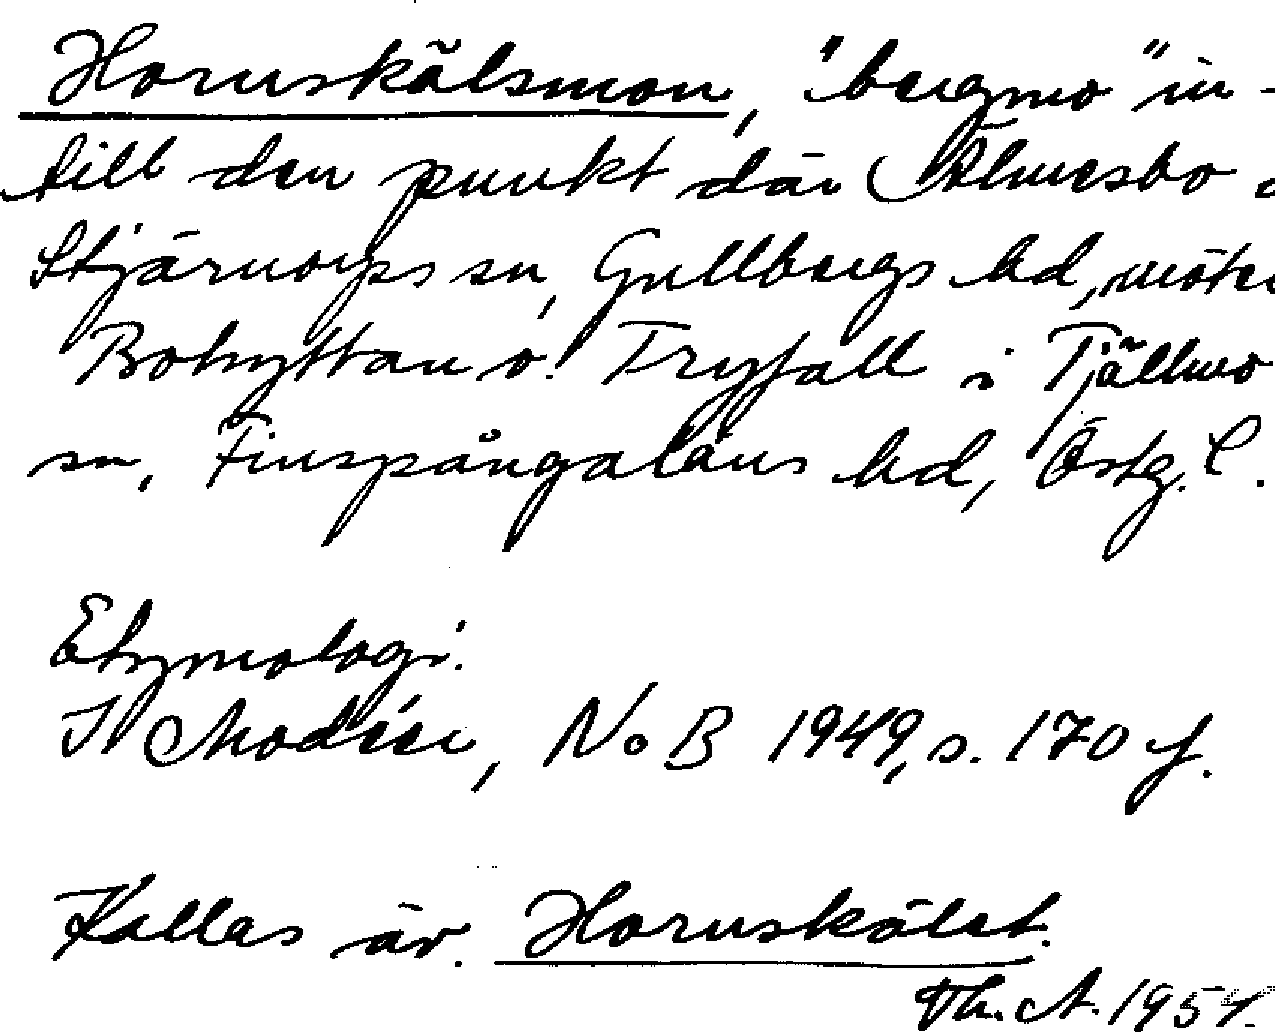 Hornskälsmon, "bergmo" in-
till den punkt där Älmesbo
Stjärnorps sn, Gullbergs hd, möter
Bohyttan o. Tryfall i Tjällmo
sn, Finspångaläns hd, Östg. l.
Etymologi:
I Modéer, NoB 1949, s. 170 f.
Kallas äv. Hornskälet.
Th. A. 1954.